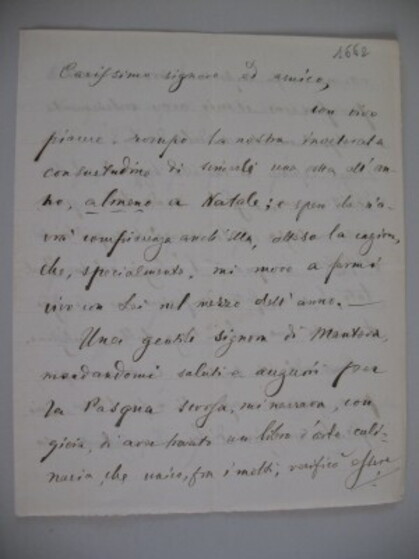 1662
Carissimo signore ed amico,
con vivo
piacere rompo la nostra inveterata
consuetudine di scriverle una volta all'an-
no, almeno a Natale; e spero che n'a-
vrà compiacenza anch'Ella, attesa la cagione,
che, specialmente, mi move a farmi
vivo con Lei nel mezzo dell'anno. —
Una gentile signora di Mantova,
mandandomi saluti e augurii per
la Pasqua scorsa, mi narrava, con
gioia, di aver avuto un libro d'arte culi-
naria, che unico, fra i molti, verificò essere